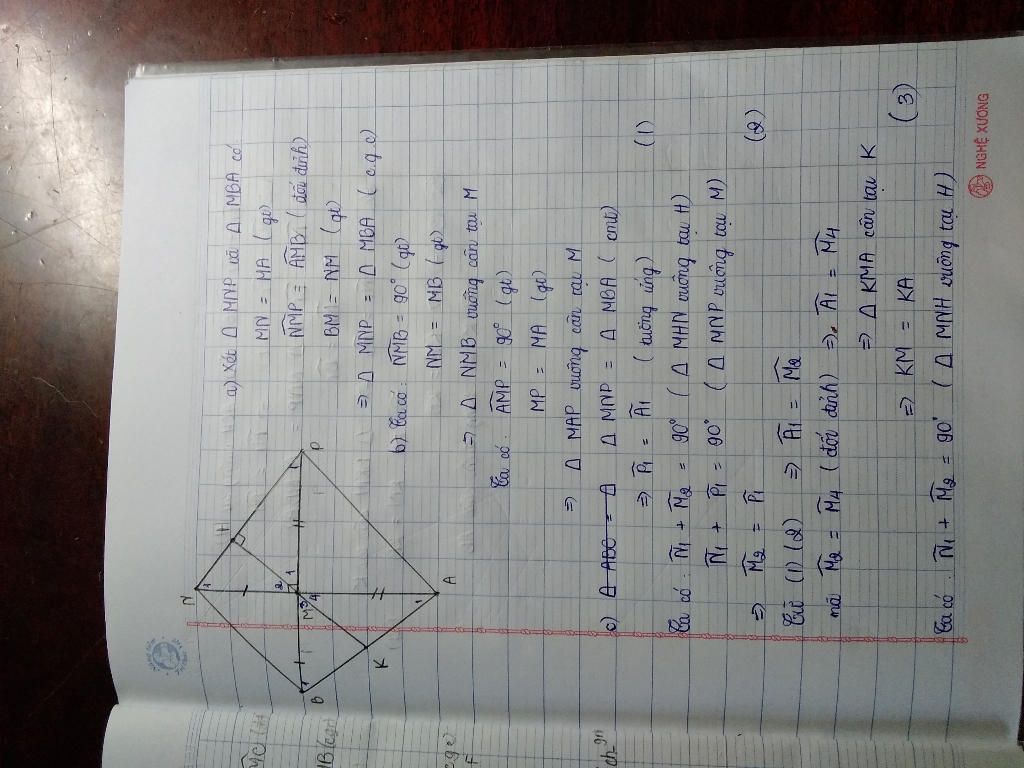 N
H
1
2
1
M
3
4
1
P
B
1
K
1
A
a) Xét Δ MNP và Δ MBA có
MN = MA (gt)
NMP = AMB (đối đỉnh)
BM = NM (gt)
=> Δ MNP = Δ MBA (c.g.c)
b) Ta có: NMB = 90° (gt)
NM = MB (gt)
=> Δ NMB vuông cân tại M
Ta có: AMP = 90° (gt)
MP = MA (gt)
=> Δ MAP vuông cân tại M
c) Δ ABC = Δ Δ MNP = Δ MBA (cmt)
=> P1 = A1 (tương ứng) (1)
Ta có: N1 + M2 = 90° (Δ MHN vuông tại H)
N1 + P1 = 90° (Δ MNP vuông tại M)
=> M2 = P1 (2)
Từ (1) (2) => A1 = M2
mà M2 = M4 (đối đỉnh) => A1 = M4
=> Δ KMA cân tại K
=> KM = KA (3)
Ta có: N1 + M2 = 90° (Δ MNH vuông tại H)
NGHỆ XƯƠNG